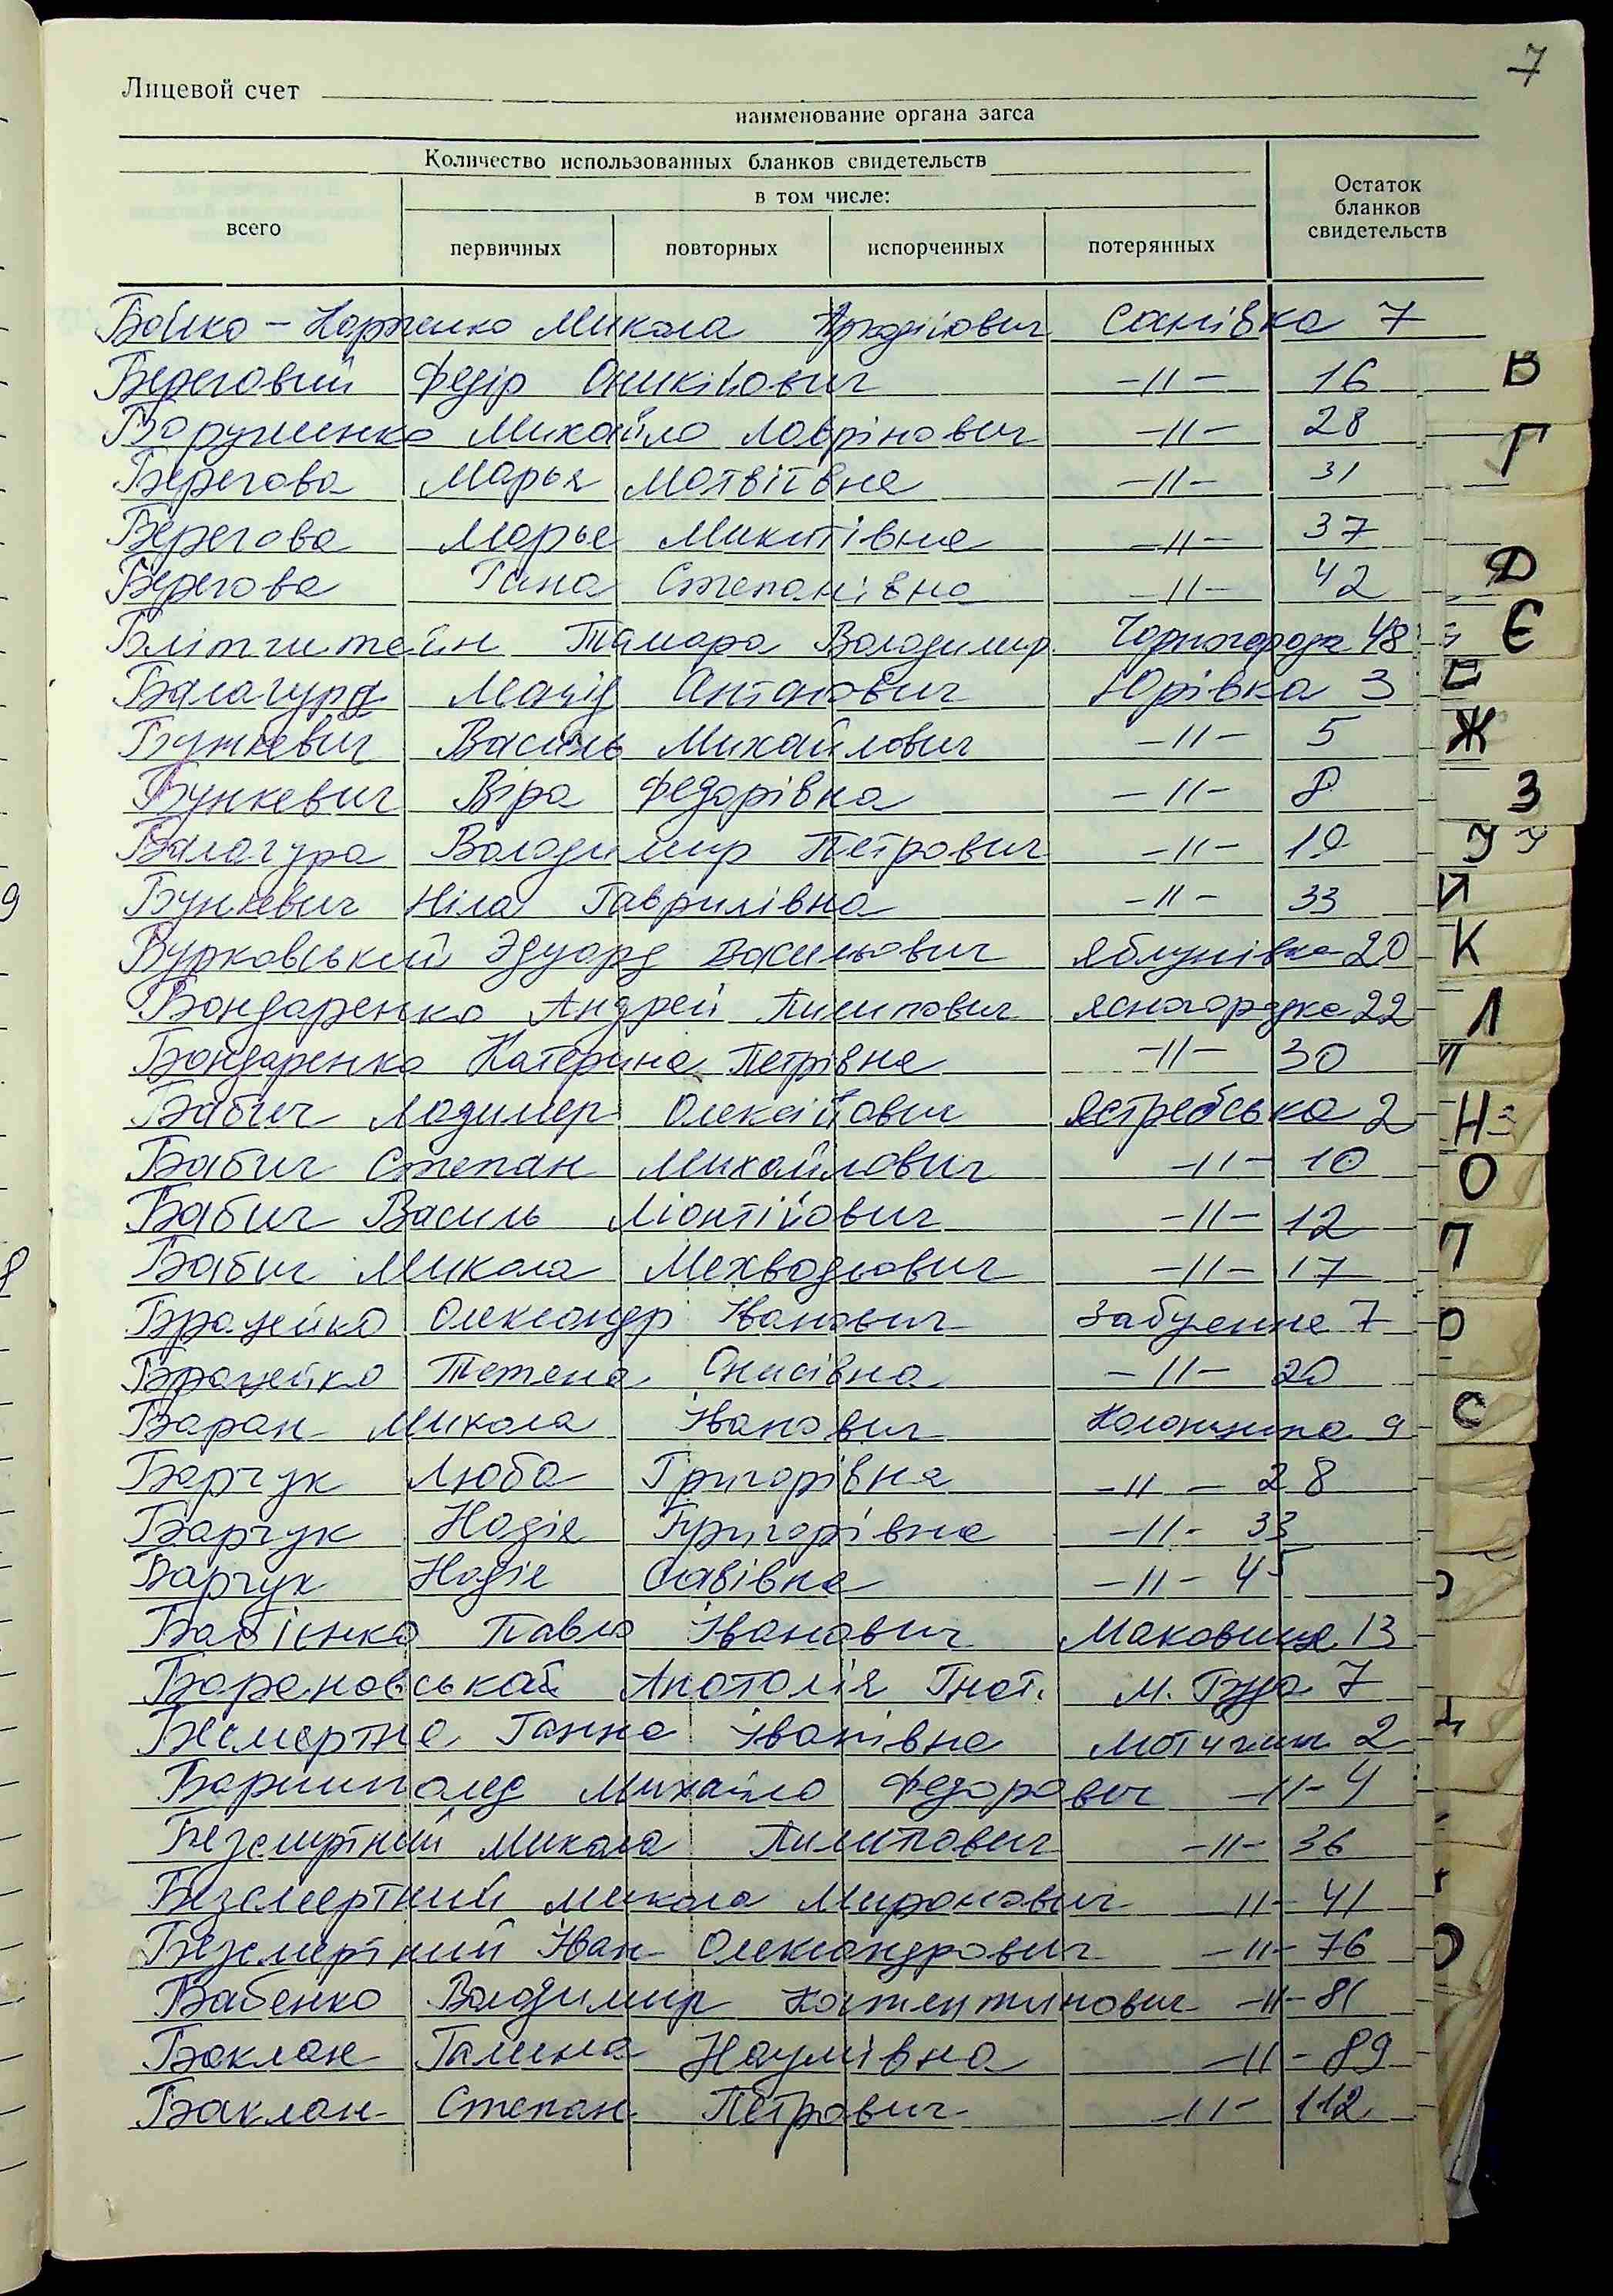 7
Лицевой счет
наименование органа загса
Количество использованных бланков свидетельств
Остаток бланков свидетельств
в том числе:
всего
первичных повторных испорченных потерянных
Бойко - Микола Аркадійович 7
Береговий Федір Оникійович -//- 16
Михайло Лаврінович -//- 28
Берегова Марья Матвіївна -//- 31
Берегова Марья Микитівна -//- 37
Берегова Гана Степанівна -//- 42
Тамара Володимир. Чорногородка 48
Балагура Антонович Юрівка 3
Василь Михайлович -//- 5
Бункевич Віра Федорівна -//- 8
Балагура Володимир Петрович -//- 19
Бункевич Ніла Гаврилівна -//- 33
Бурковський Эдуард Васильович Яблунівка 20
Бондаренко Андрей Пилипович Ясногородка 22
Бондаренко Катерина Петрівна -//- 30
Бабич Лодимер Олексійович Ястребська 2
Бабич Степан Михайлович -//- 10
Бабич Василь Ліонтійович -//- 12
Бабич Микола -//- 17
Брацейко Олександр Іванович Забуення 7
Брацейко Тетяна Онисівна -//- 20
Баран Микола Іванович Колонщина 9
Барчук Люба Григорівна -//- 28
Барчук Надія Григорівна -//- 33
Барчук Надіе Савівна -//- 45
Павло Іванович Маковище 13
Анатолія Гнат. М. Буда 7
Ганна Іванівна Мотижин 2
Михайло Федорович -//- 4
Безсмертний Микола Пилипович -//- 36
Безсмертний Микола Миронович -//- 41
Безсмертний Іван Олександрович -//- 76
Бабенко Володимир Костентинович -//- 81
Баклан Галина Наумівна -//- 89
Баклан Степан Петрович -//- 112
В
Г
Д
Є
Ж
З
У
И
К
Л
Н
О
П
С